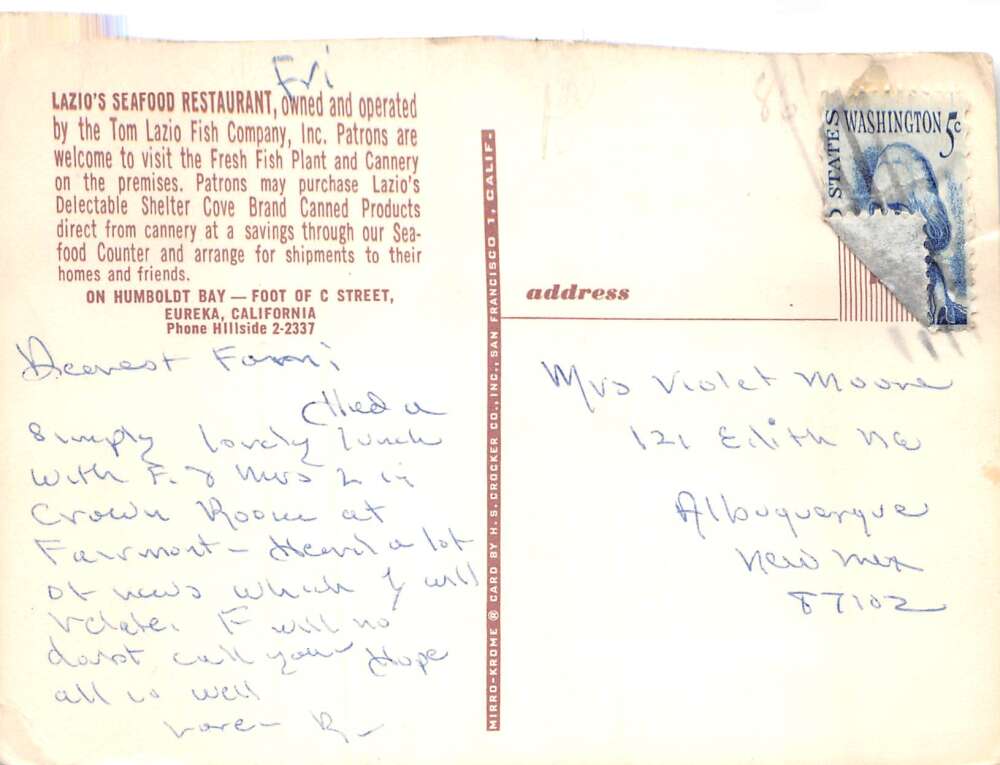 Fri
LAZIO'S SEAFOOD RESTAURANT, owned and operated
by the Tom Lazio Fish Company, Inc. Patrons are
welcome to visit the Fresh Fish Plant and Cannery
on the premises. Patrons may purchase Lazio's
Delectable Shelter Cove Brand Canned Products
direct from cannery at a savings through our Sea-
food Counter and arrange for shipments to their
homes and friends.
ON HUMBOLDT BAY — FOOT OF C STREET,
EUREKA, CALIFORNIA
Phone HIllside 2-2337
Dearest
Had a
simply lovely lunch
with F. & Mrs L in
Crown Room at
Fairmont - Heard a lot
of news which I will
relate. F will no
doubt call you Hope
all is well
Love - R
MIRRO-KROME ® CARD BY H. S. CROCKER CO., INC., SAN FRANCISCO 1, CALIF.
STATES
WASHINGTON 5c
address
Mrs Violet Moore
121 Edith NE
Albuquerque
New Mex
87102